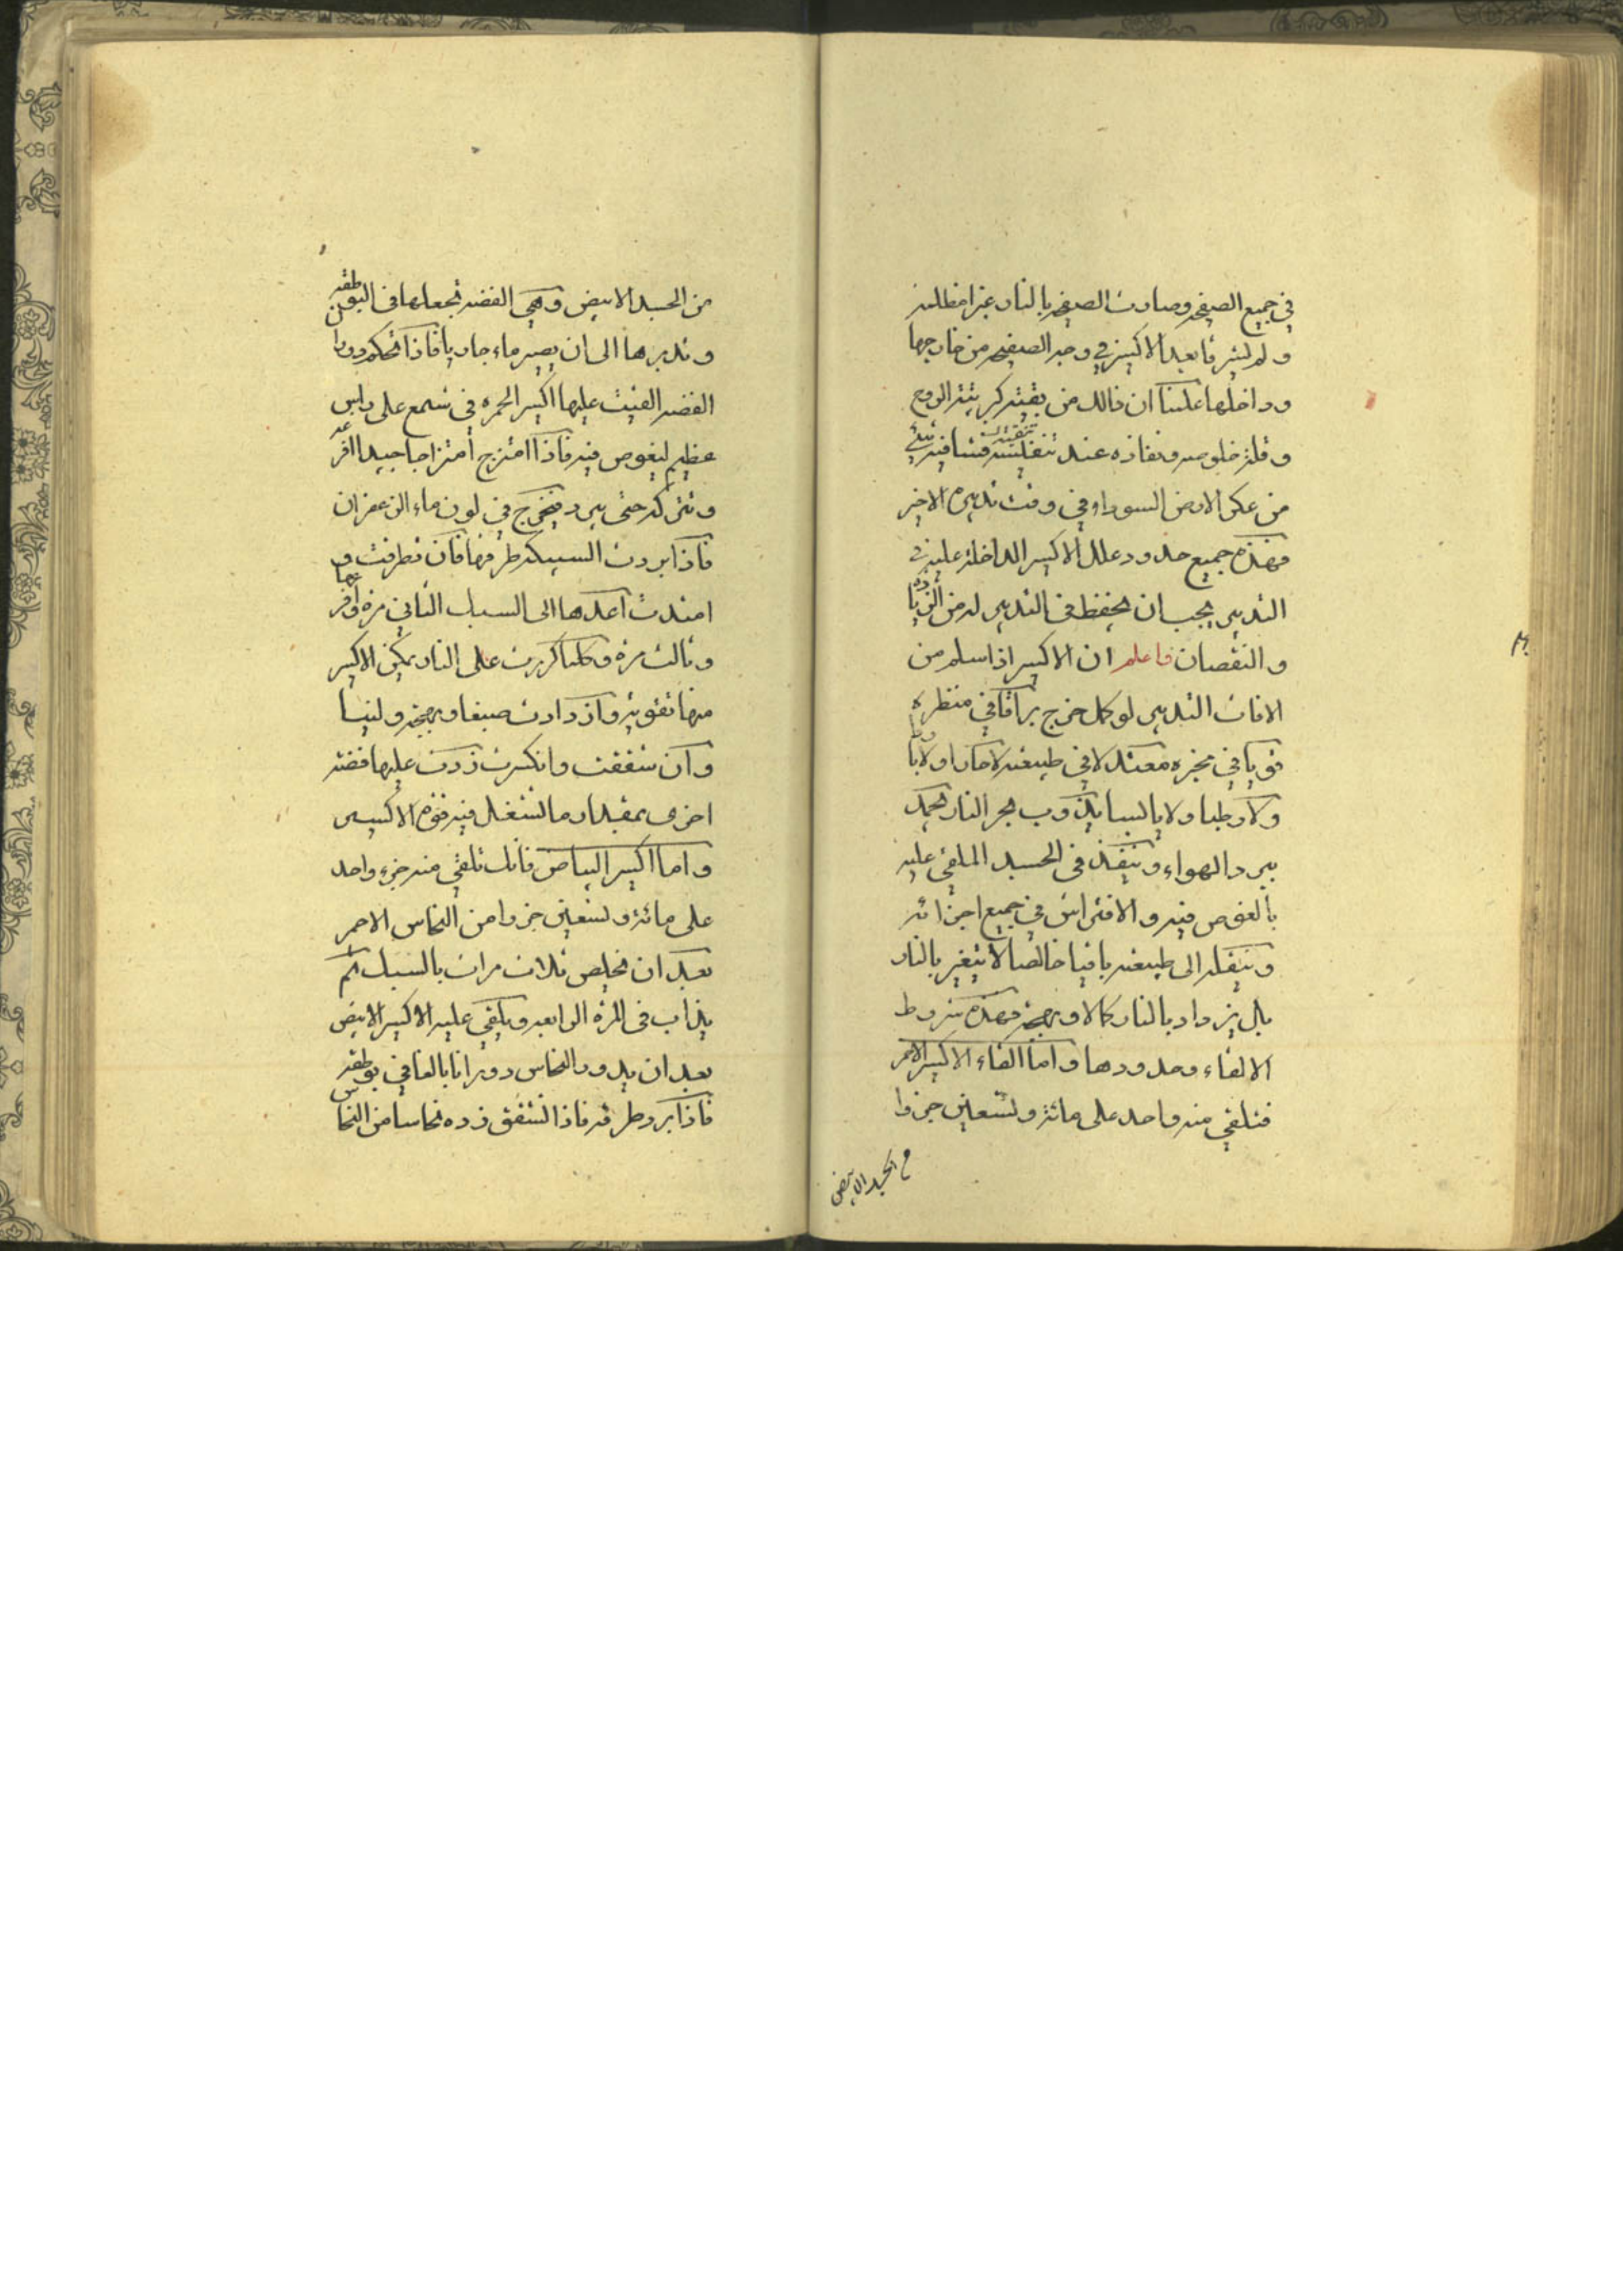 في جميع الصفيحة وصارت الصفيحة بالنار غبرا مظلمة
ولم يشرقا بعد الاكسير في وجه الصفيحة من خارجها
وداخلها علمنا ان ذالك من بقية كبريتية الروح
وقلة خلوصه ونفاذه عند فيه شيء
من عكر الارض السودا وفي وقت تدبيره الاخير
فهذه جميع حدود وعلل الاكسير الداخلة عليه في
التدبير يجب ان يحفظ في التدبير له من الزيادة
والنقصان فاعلم ان الاكسير اذا سلم من
الافات التدبير لو كمل خرج براقا في منظره
قويا في مخبره معتدلا في طبيعته لا حارا ولا باردا
ولا رطبا ولا يابسا يذوب بحر النار يجمد
ببرد الهواء وينفذ في الجسد الملقي عليه
بالغوص فيه والافتراش في جميع اجزائه
وينقله الى طبيعته باقيا خالصا لا يتغير بالنار
بل يزداد بالنار كمالا وبهجة فهذه شروط
الالقاء وحدودها واما القاء الاكسير الاحمر
فتلقي منه واحد على مائة وتسعين جزوا
من الجسد الابيض
من الجسد الابيض وهي الفضة تجعلها في البوطقة
وتديرها الى ان يصير ماء جاريا فاذا تحكم دوران
الفضة القيت عليها اكسير الحمرة في شمع على راس
عظيم ليغوص فيه فاذا امتزج امتزاجا جيدا افرغه
وتتركه حتى يبرد فيخرج في لون ماء الزعفران
فاذا بردت السبيكة طرقها فان تطرقت و
امتدت اعدها الى السبك الثاني مرة وافرغها
وثالث مرة وكلما كررت على النار يمكن الاكسير
منها تقوية وازدادت صبغا وبهجة ولينا
وان شققت وانكسرت زدت عليها فضة
اخرى بمقدار ما تشتغل فيه قوة الاكسير
واما اكسير البياض فانك تلقي منه جزء واحد
على مائة وتسعين جزوا من النحاس الاحمر
بعد ان يخلص ثلاث مرات بالسبك ثم
يذاب في المرة الرابعة ويلقي عليه الاكسير الابيض
بعد ان يدور النحاس دورانا بالغا في بوطقة
فاذا برد طرقه فاذا تشقق زده نحاسا من النحاس